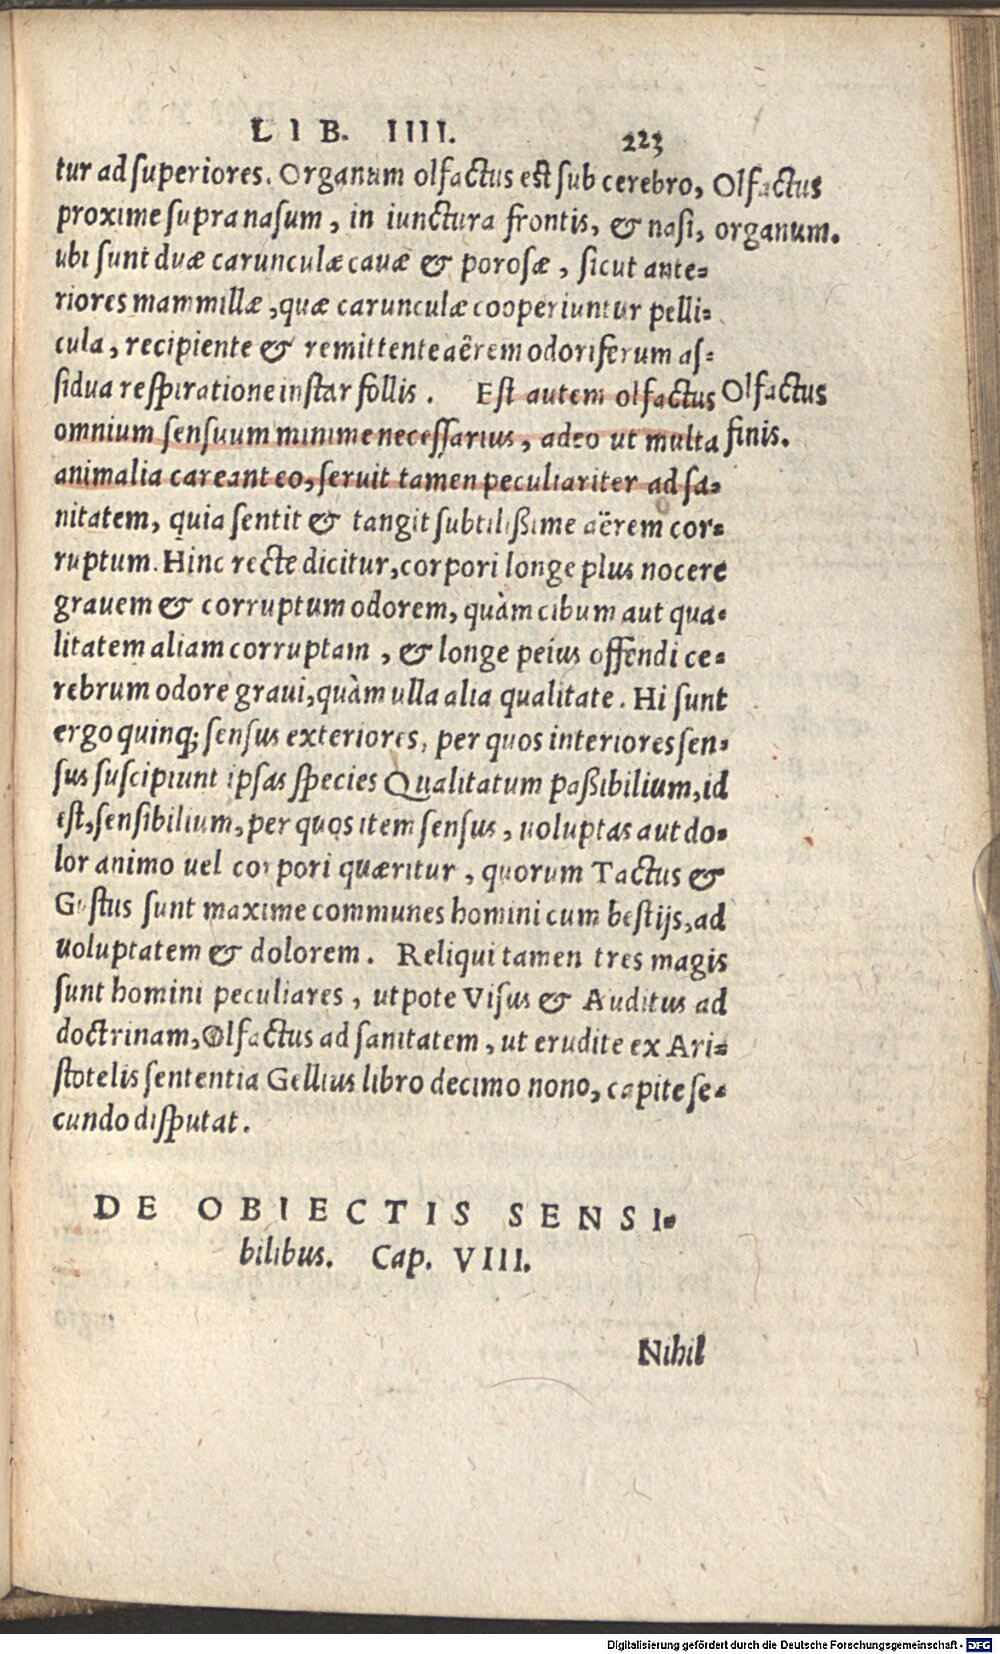 LIB. IIII. 223
tur ad superiores. Organum olfactus est sub cerebro,
Olfactus
proxime supra nasum, in iunctura frontis, & nasi,
organum.
ubi sunt duæ carunculæ cauæ & porosæ, sicut ante-
riores mammillæ, quæ carunculæ cooperiuntur pelli-
cula, recipiente & remittente aërem odoriferum as-
sidua respiratione instar follis. Est autem olfactus
Olfactus
omnium sensuum minime necessarius, adeo ut multa
finis.
animalia careant eo, seruit tamen peculiariter ad sa-
nitatem, quia sentit & tangit subtilißime aërem cor-
ruptum. Hinc recte dicitur, corpori longe plus nocere
grauem & corruptum odorem, quàm cibum aut qua-
litatem aliam corruptam, & longe peius offendi ce-
rebrum odore graui, quàm ulla alia qualitate. Hi sunt
ergo quinq; sensus exteriores, per quos interiores sen-
sus suscipiunt ipsas species Qualitatum paßibilium, id
est, sensibilium, per quos item sensus, uoluptas aut do-
lor animo uel corpori quæritur, quorum Tactus &
Gustus sunt maxime communes homini cum bestijs, ad
uoluptatem & dolorem. Reliqui tamen tres magis
sunt homini peculiares, utpote Visus & Auditus ad
doctrinam, Olfactus ad sanitatem, ut erudite ex Ari-
stotelis sententia Gellius libro decimo nono, capite se-
cundo disputat.
DE OBIECTIS SENSI-
bilibus. Cap. VIII.
Nihil
Digitalisierung gefördert durch die Deutsche Forschungsgemeinschaft - DFG